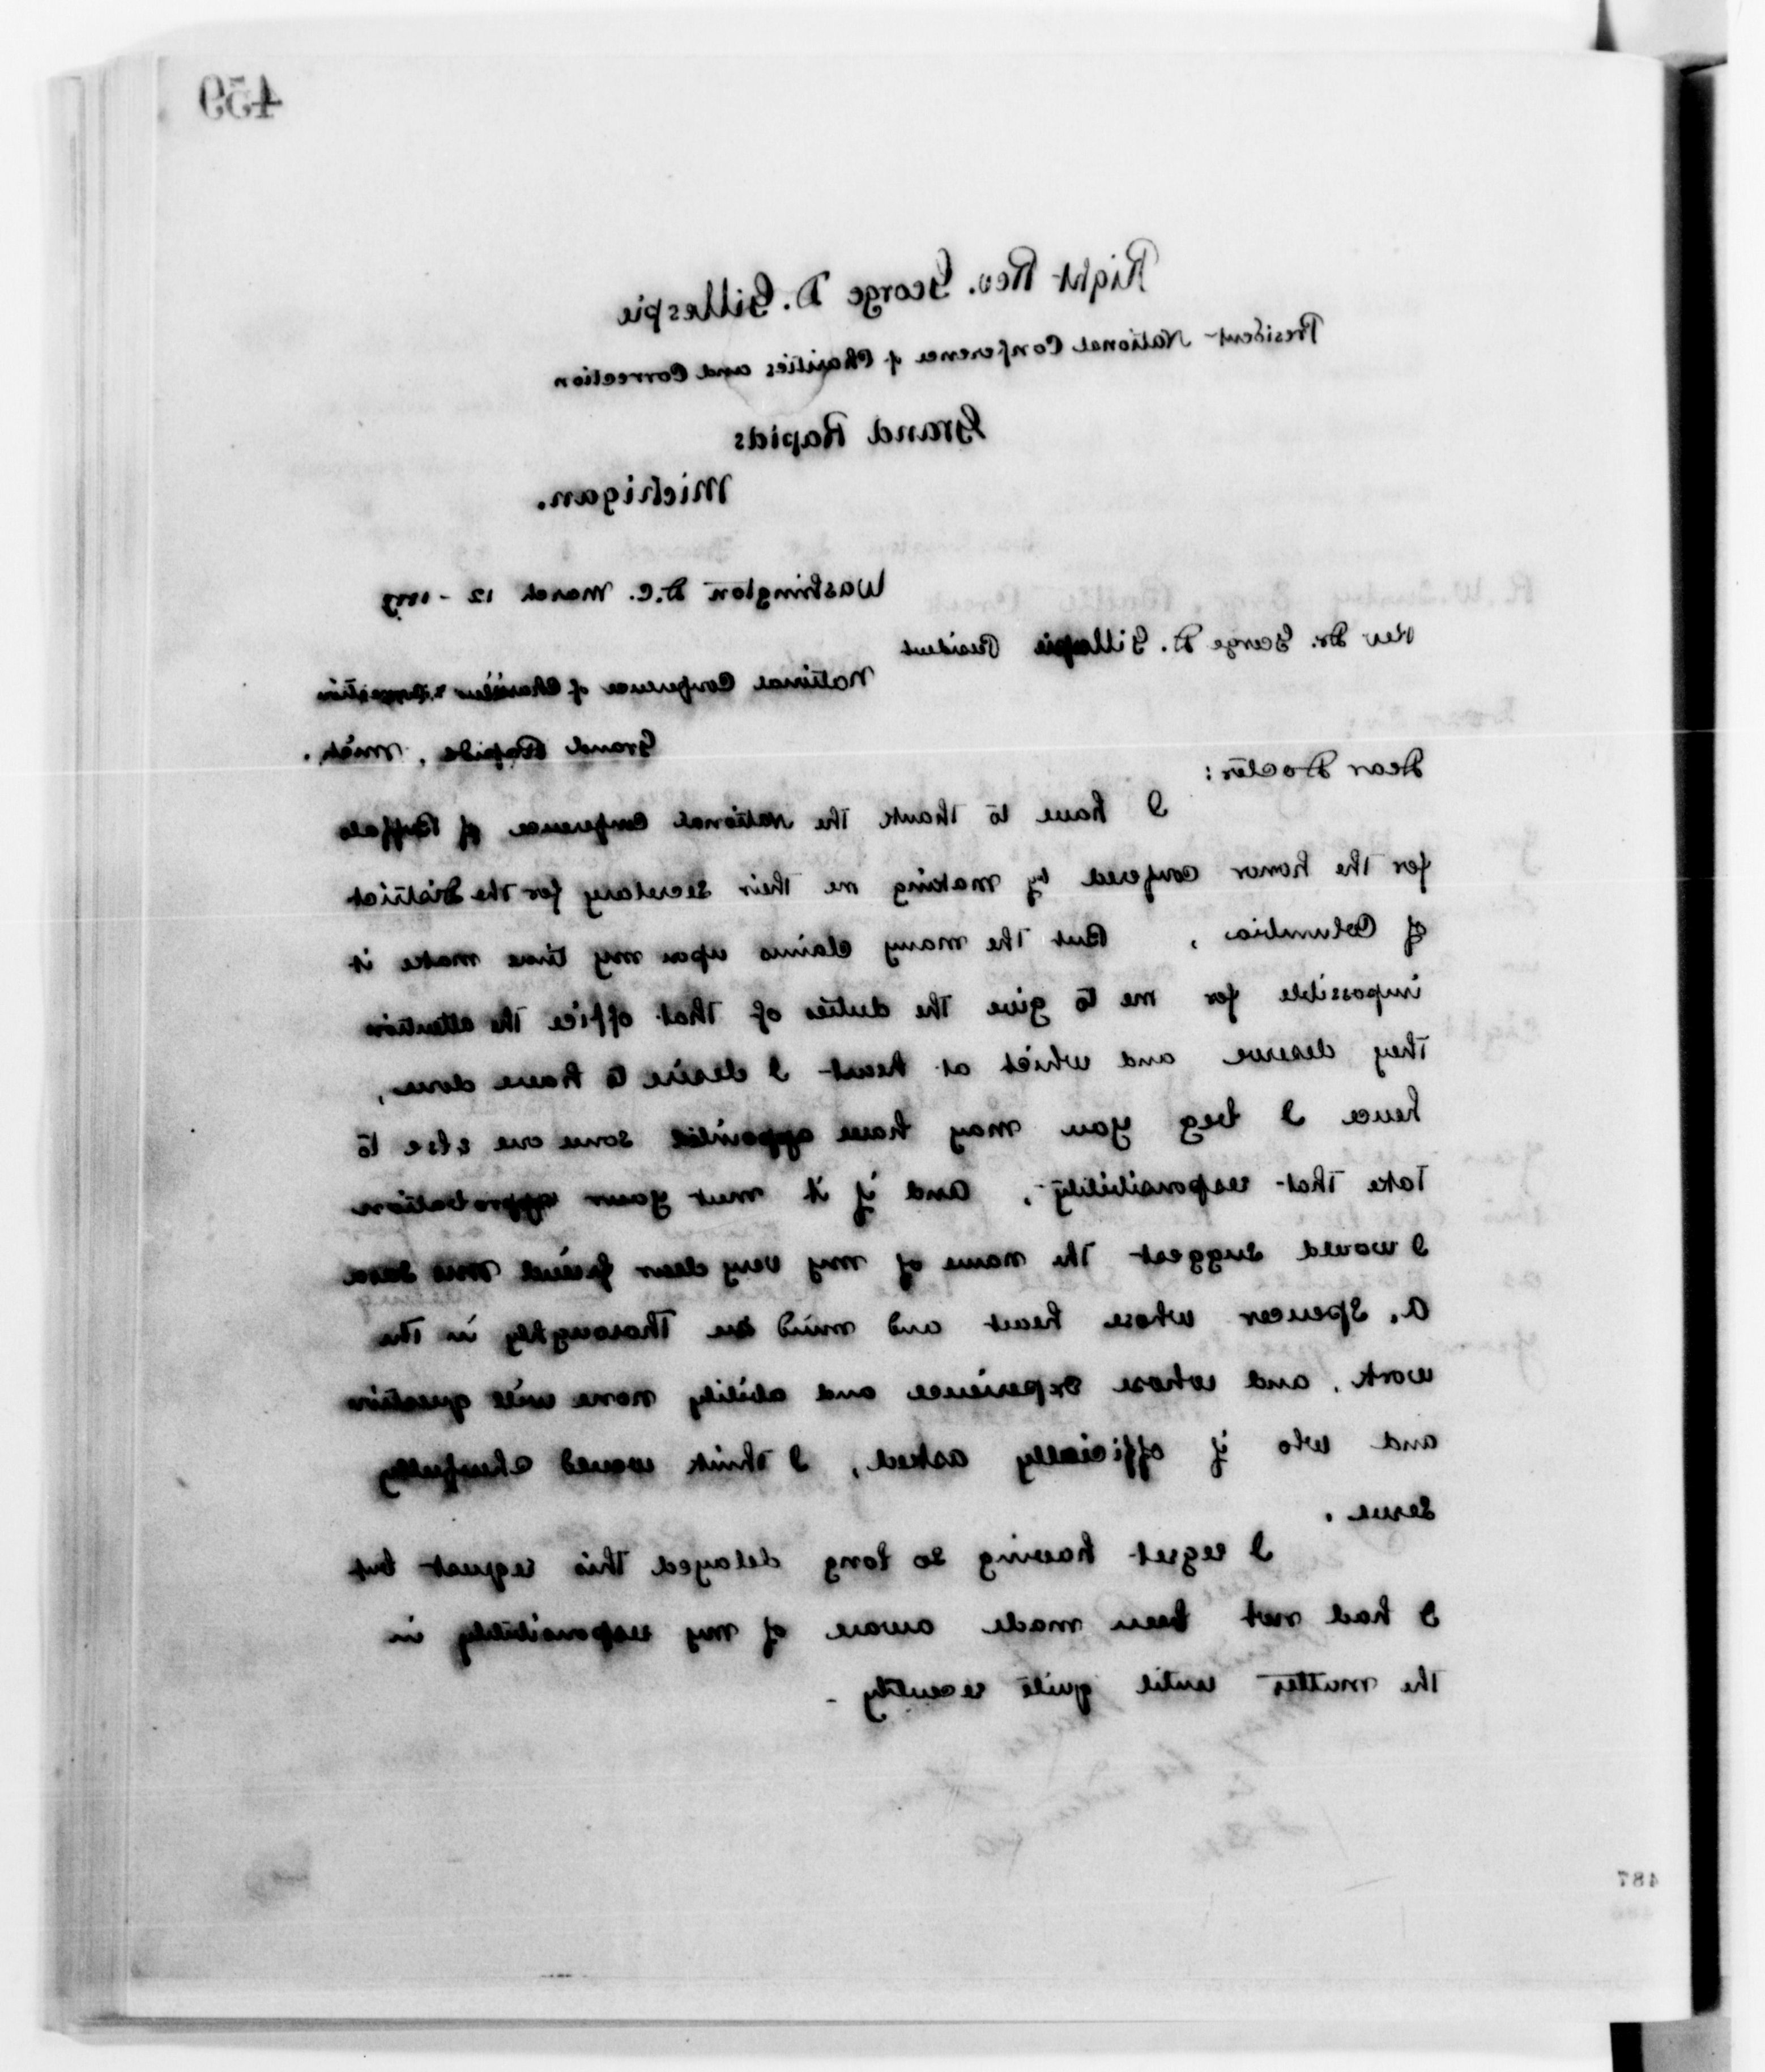 459
Right Rev. George D. Gillespie
President National Conference of Charities and Correction
Grand Rapids
Michigan.
Washington D.C. March 12 -
Rev Dr. George D. Gillespie President
National Conference of Charities & Correction
Grand Rapids, Mich.
Dear Doctor:
I have to thank the National Conference of Buffalo
for the honor confered by making me their secretary for the District
of Columbia, But the many claims upon my time make it
impossible for me to give the duties of that office the attention
they deserve and which at heart I desire to have done,
hence I beg you may have appointed some one else to
take that responsibility, and if it meet your approbation
I would suggest the name of my very dear friend Mrs Sara
A. Spencer whose heart and mind are thoroughly in the
work, and whose experience and ability none will question
and who if officially asked, I think would cheerfully
serve.
I regret having so long delayed this request but
I had not been made aware of my responsibility in
the matter until quite recently -
487